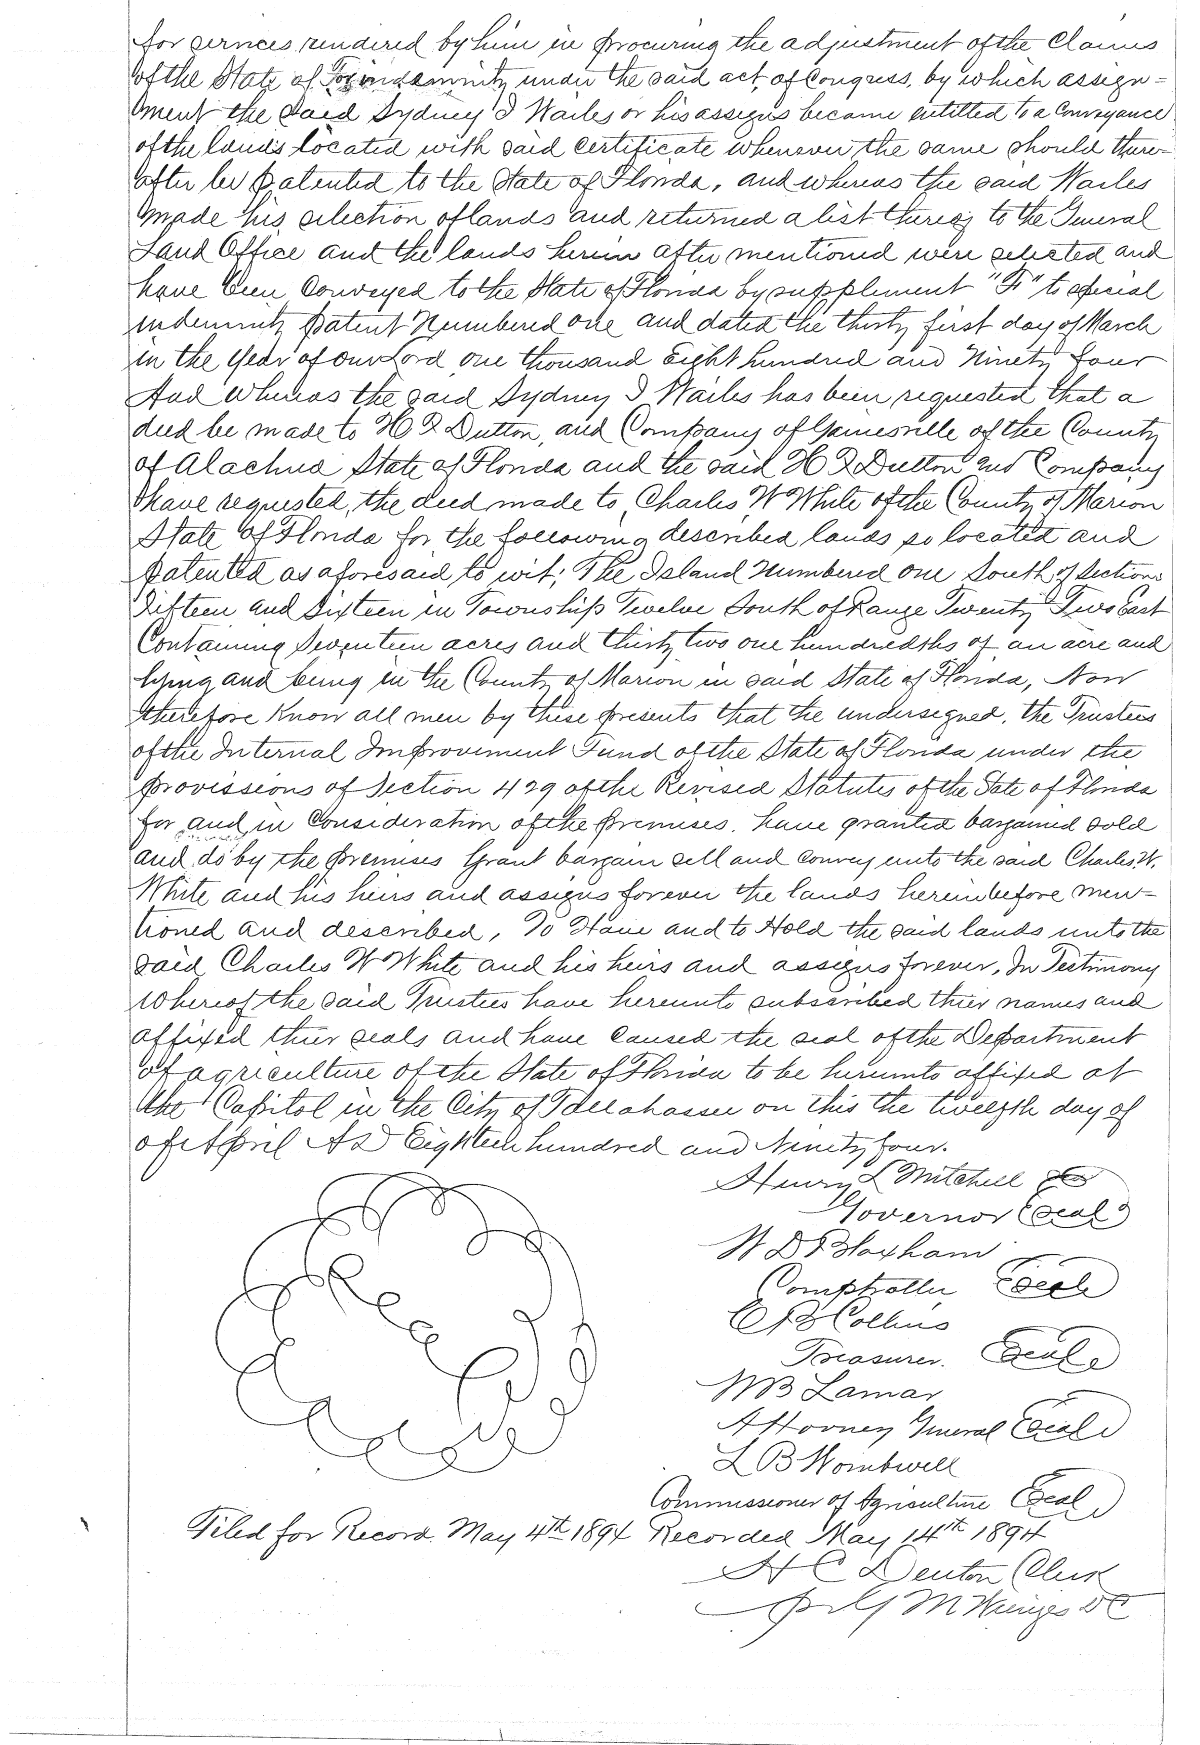 for services rendered by him in procuring the adjustment of the Claims
of the State of for indemnity under the said act, of Congress, by which assign=
ment the said Sydney I Wailes or his assigns became entitled to a Conveyance
of the lands located with said certificate whenever the same should there-
after be patented to the State of Florida, and whereas the said Wailes
made his selection of lands and returned a list thereof to the General
Land Office and the lands herein after mentioned were selected and
have been conveyed to the State of Florida by supplement "F" to special
indemnity patent Numbered one and dated the thirty first day of March
in the Year of our Lord one thousand Eight hundred and Ninety four
And whereas the said Sydney I Wailes has been requested that a
deed be made to H F Dutton, and Company of Gainesville of the County
of Alachua State of Florida and the said H F Dutton and Company
have requested, the deed made to Charles W White of the County of Marion
State of Florida for the following described lands so located and
patented as aforesaid to wit; The Island Numbered one South of Sections
Fifteen and Sixteen in Township Twelve South of Range Twenty Two East
Containing Seventeen acres and thirty two one hundredths of an acre and
lying and being in the County of Marion in said State of Florida, Now
therefore Know all men by these presents that the undersigned, the Trustees
of the Internal Improvement Fund of the State of Florida under the
provissions of Section 429 of the Revised Statutes of the State of Florida
for and in Consideration of the premises, have granted bargained sold
and do by the premises Grant bargain sell and convey unto the said Charles W.
White and his heirs and assigns forever the lands hereinbefore men-
tioned and described, To Have and to Hold the said lands unto the
said Charles W White and his heirs and assigns forever, In Testimony
Whereof the said Trustees have hereunto subscribed thier names and
affixed thier seals and have caused the seal of the Department
of agriculture of the State of Florida to be hereunto affixed at
the Capitol in the City of Tallahassee on this the twelfth day of
of April AD Eighteen hundred and Ninety four.
Henry L Mitchell
Governor (Seal)
W D Bloxham
Comptroller (Seal)
C B Collins
Treasurer. (Seal)
W B Lamar
Attorney General (Seal)
L B Wombwell
Commissioner of Agriculture (Seal)
Seal
Filed for Record May 4th 1894 Recorded May 14th 1894
H C Denton Clerk
M DC